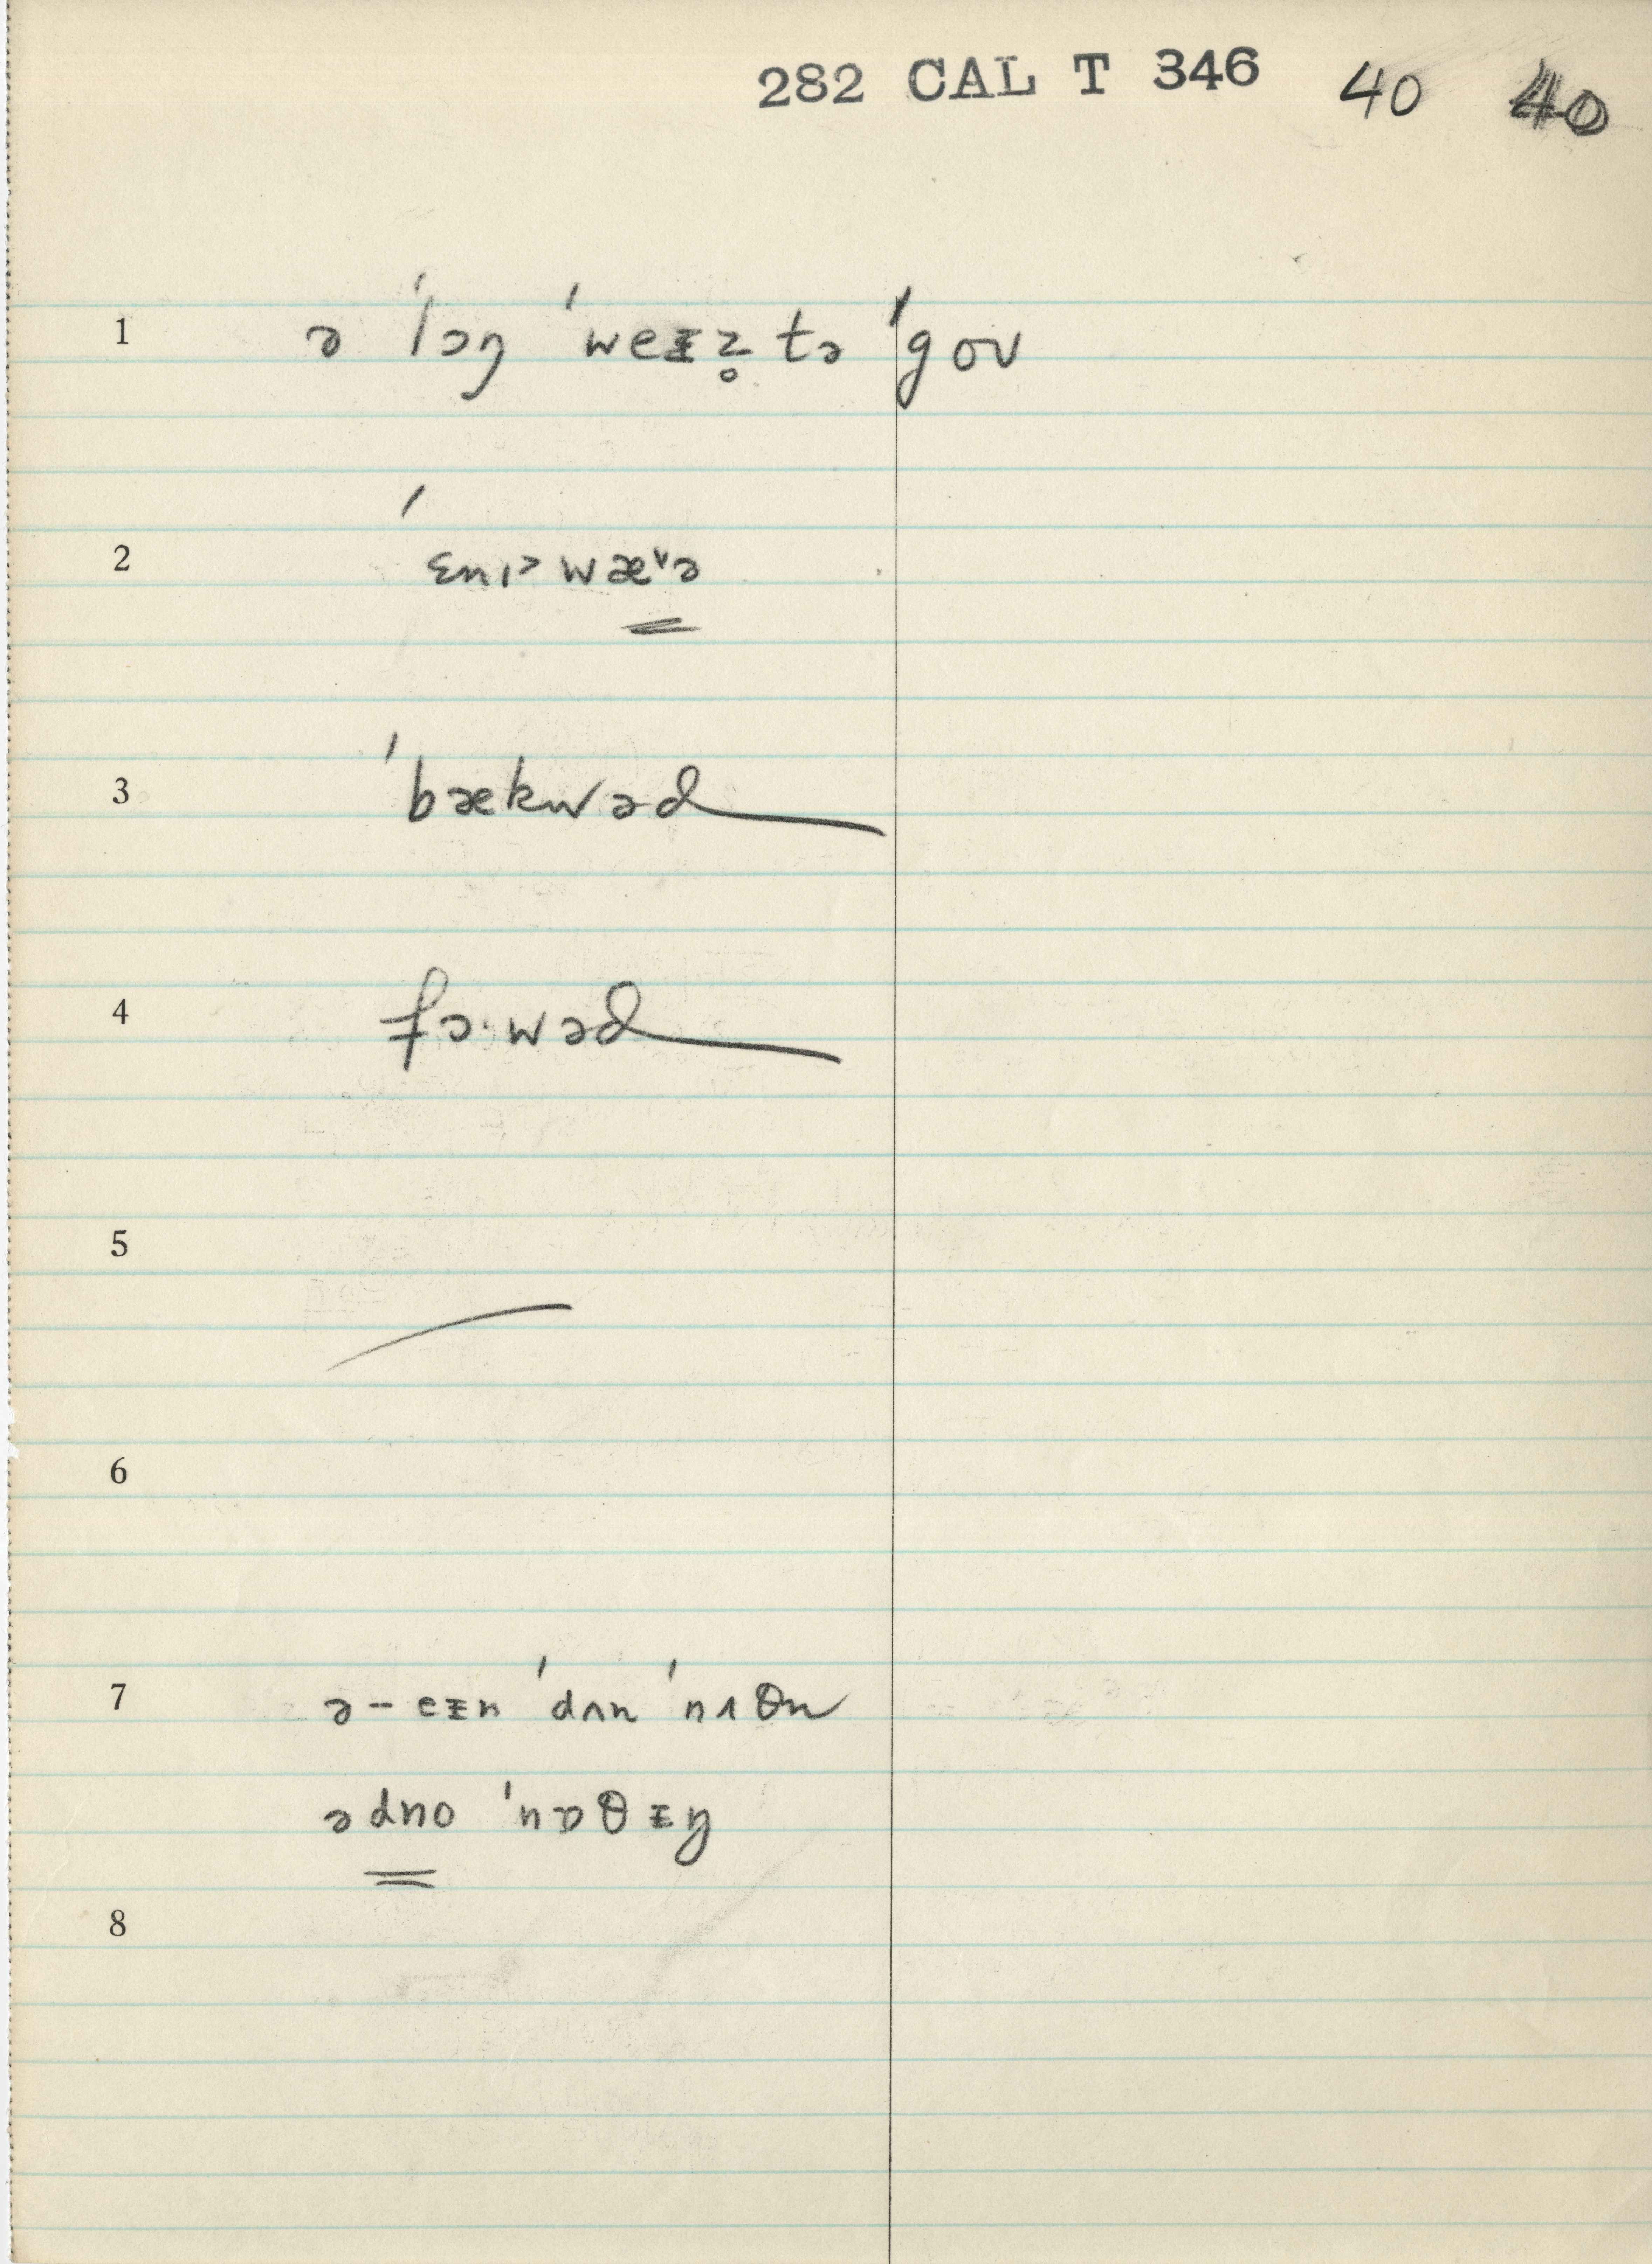 282 CAL T 346 40 40
1 ə ˈlɔŋ ˈweᵻz̥ tə ˈgoʊ
2 ˈɛnɪ˃wæ˅ə
3 ˈbækwəd
4 fɔ·wəd
5
6
7 ə – eᵻn ˈdʌn ˈnʌθn
ədno ˈnɒθᵻŋ
8